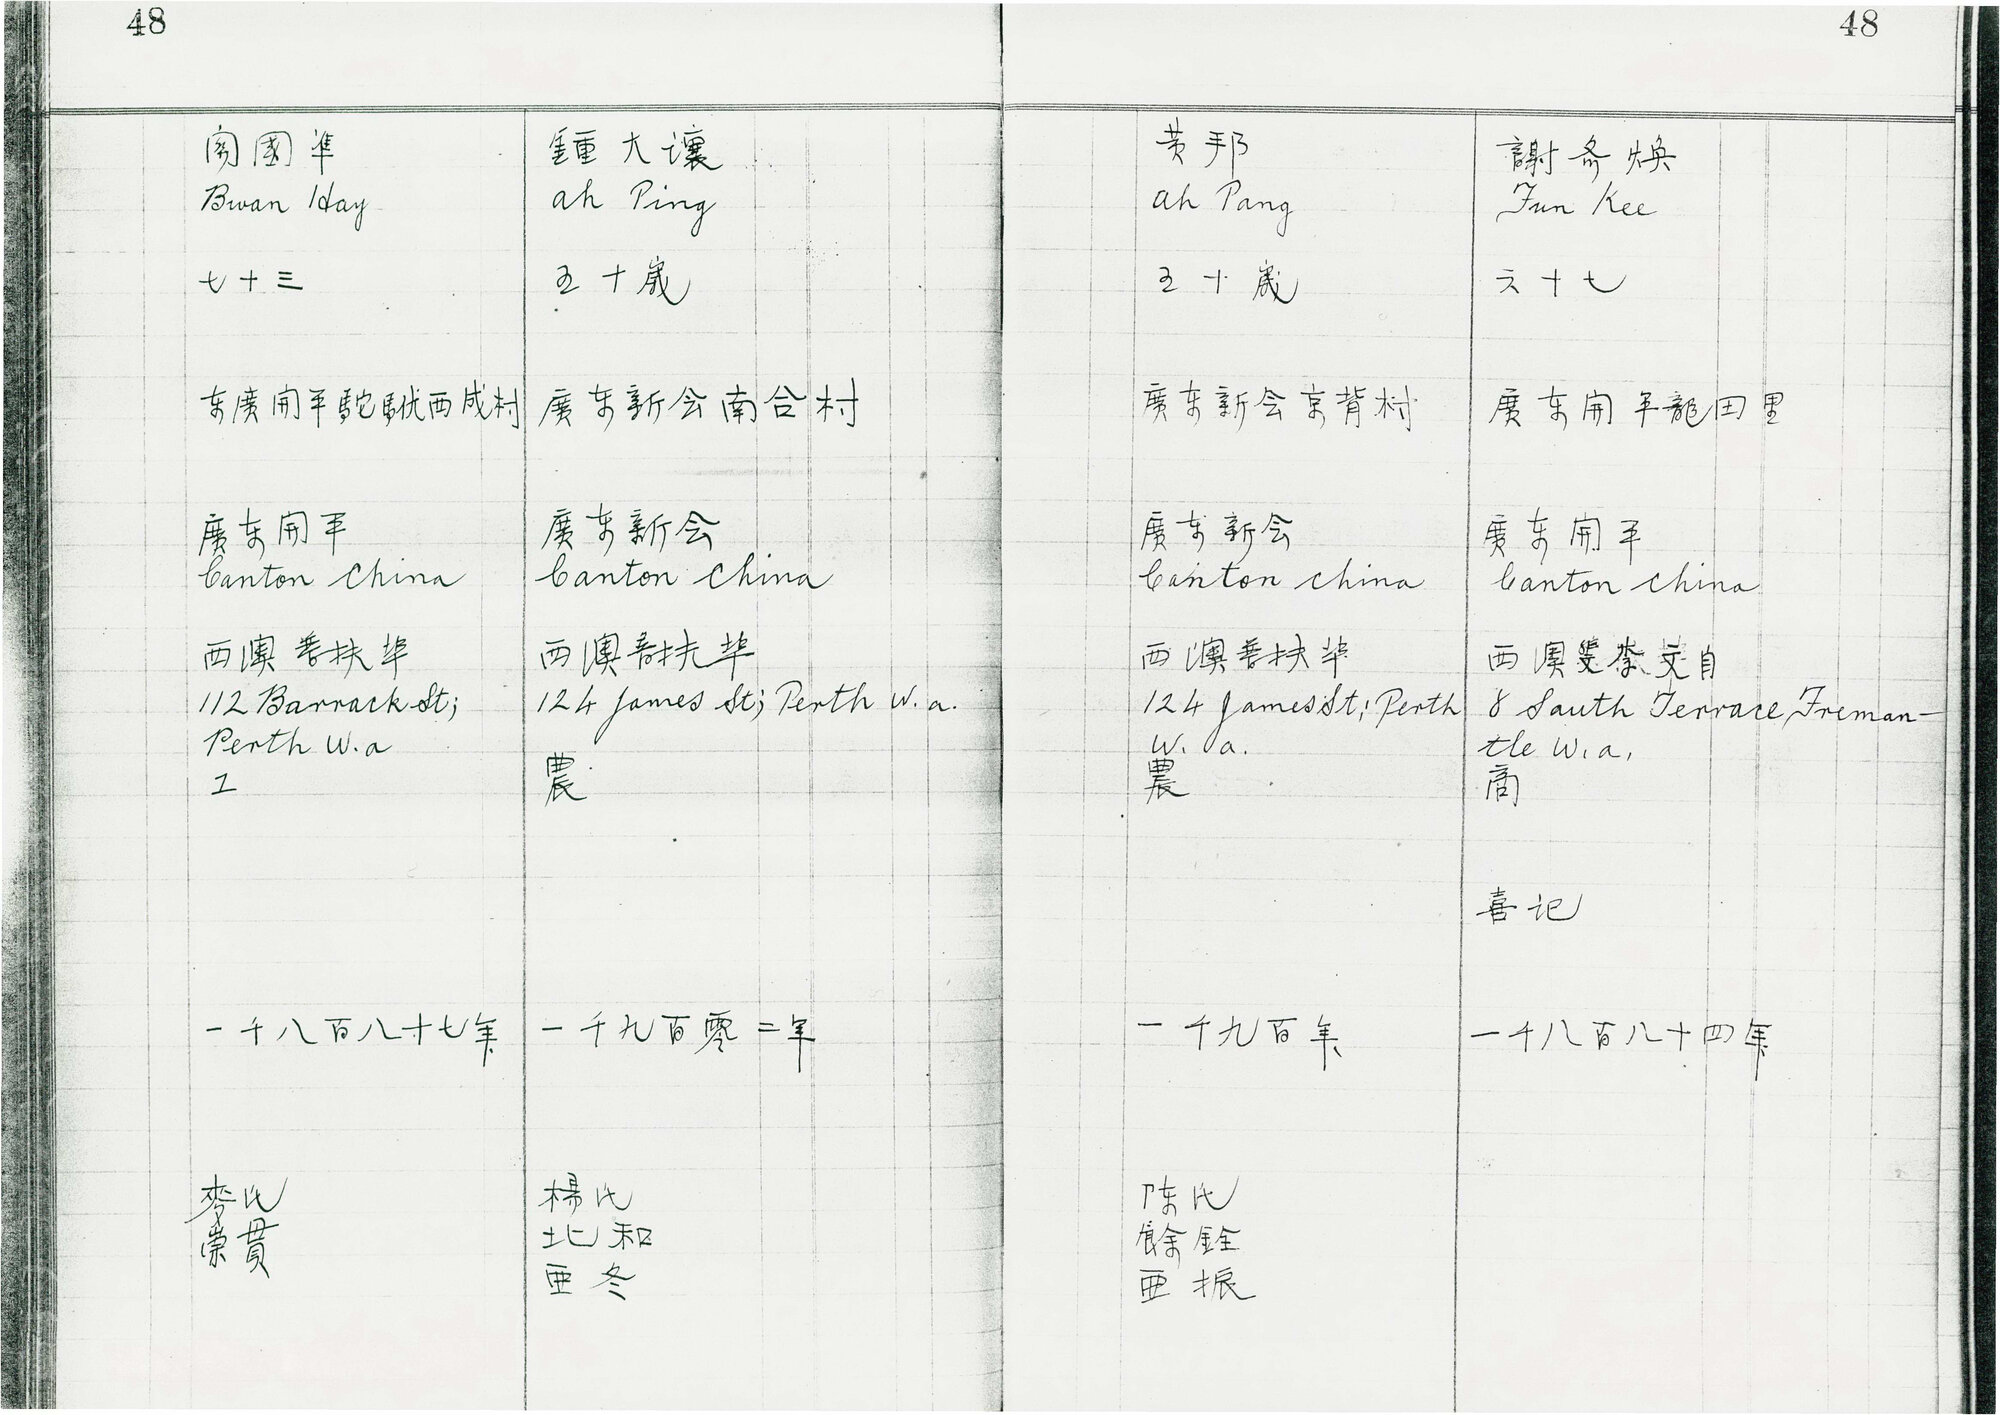 48
関國準
Bwan Hay
七十三
东廣開平駝駄西成村
廣东開平
Canton China
西澳普扶埠
112 Barrack St;
Perth W.a
工
一千八百八十七年
麥氏
崇貫
鍾大讓
ah Ping
五十歲
廣东新会南合村
廣东新会
Canton China
西澳普扶埠
124 James St; Perth W.a.
農
一千九百零二年
楊氏
北和
亜冬
48
黄邦
ah Pang
五十歲
廣东新会京背村
廣东新会
Canton china
西澳普扶埠
124 James St; Perth
W. a.
農
一千九百年
陈氏
餘銓
亜振
謝奇煥
Fun Kee
六十七
廣东開平龍田里
廣东開平
Canton China
西澳
8 South Terrace, Freman-
tle W.a,
商
喜记
一千八百八十四年